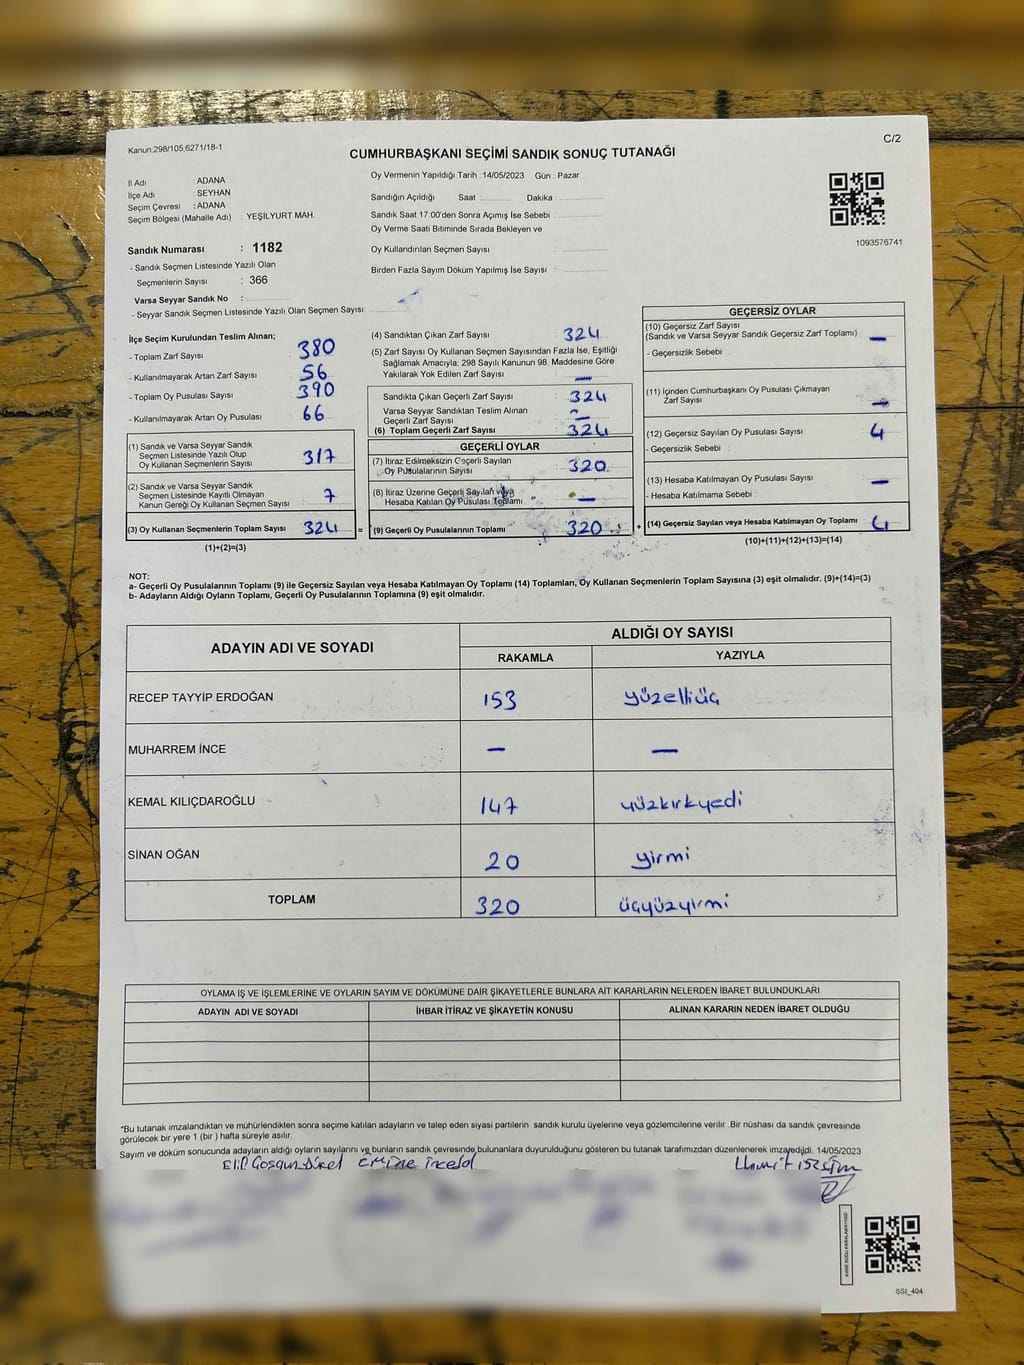 Kanun:298/105,6271/18-1
C/2
CUMHURBAŞKANI SEÇİMİ SANDIK SONUÇ TUTANAĞI
İl Adı : ADANA
İlçe Adı : SEYHAN
Seçim Çevresi : ADANA
Seçim Bölgesi (Mahalle Adı) : YEŞİLYURT MAH.
Sandık Numarası : 1182
- Sandık Seçmen Listesinde Yazılı Olan
Seçmenlerin Sayısı : 366
Varsa Seyyar Sandık No :
- Seyyar Sandık Seçmen Listesinde Yazılı Olan Seçmen Sayısı:
Oy Vermenin Yapıldığı Tarih : 14/05/2023 Gün : Pazar
Sandığın Açıldığı Saat : Dakika :
Sandık Saat 17:00'den Sonra Açımış İse Sebebi :
Oy Verme Saati Bitiminde Sırada Bekleyen ve
Oy Kullandırılan Seçmen Sayısı :
Birden Fazla Sayım Döküm Yapılmış İse Sayısı :
1093576741
İlçe Seçim Kurulundan Teslim Alınan;
- Toplam Zarf Sayısı 380
- Kullanılmayarak Artan Zarf Sayısı : 56
- Toplam Oy Pusulası Sayısı : 390
- Kullanılmayarak Artan Oy Pusulası : 66
(1) Sandık ve Varsa Seyyar Sandık
Seçmen Listesinde Yazılı Olup
Oy Kullanan Seçmenlerin Sayısı : 317
(2) Sandık ve Varsa Seyyar Sandık
Seçmen Listesinde Kayıtlı Olmayan
Kanun Gereği Oy Kullanan Seçmen Sayısı : 7
(3) Oy Kullanan Seçmenlerin Toplam Sayısı : 324 =
(1)+(2)=(3)
(4) Sandıktan Çıkan Zarf Sayısı : 324
(5) Zarf Sayısı Oy Kullanan Seçmen Sayısından Fazla İse, Eşitliği
Sağlamak Amacıyla; 298 Sayılı Kanunun 98. Maddesine Göre
Yakılarak Yok Edilen Zarf Sayısı : —
Sandıkta Çıkan Geçerli Zarf Sayısı : 324
Varsa Seyyar Sandıktan Teslim Alınan
Geçerli Zarf Sayısı : —
(6) Toplam Geçerli Zarf Sayısı : 324
GEÇERLİ OYLAR
(7) İtiraz Edilmeksizin Geçerli Sayılan
Oy Pusulalarının Sayısı : 320
(8) İtiraz Üzerine Geçerli Sayılan veya
Hesaba Katılan Oy Pusulası Toplamı : —
(9) Geçerli Oy Pusulalarının Toplamı : 320 +
GEÇERSİZ OYLAR
(10) Geçersiz Zarf Sayısı
(Sandık ve Varsa Seyyar Sandık Geçersiz Zarf Toplamı) : —
- Geçersizlik Sebebi :
(11) İçinden Cumhurbaşkanı Oy Pusulası Çıkmayan
Zarf Sayısı : —
(12) Geçersiz Sayılan Oy Pusulası Sayısı : 4
- Geçersizlik Sebebi :
(13) Hesaba Katılmayan Oy Pusulası Sayısı : —
- Hesaba Katılmama Sebebi :
(14) Geçersiz Sayılan veya Hesaba Katılmayan Oy Toplamı : 4
(10)+(11)+(12)+(13)=(14)
NOT:
a- Geçerli Oy Pusulalarının Toplamı (9) ile Geçersiz Sayılan veya Hesaba Katılmayan Oy Toplamı (14) Toplamları, Oy Kullanan Seçmenlerin Toplam Sayısına (3) eşit olmalıdır. (9)+(14)=(3)
b- Adayların Aldığı Oyların Toplamı, Geçerli Oy Pusulalarının Toplamına (9) eşit olmalıdır.
ADAYIN ADI VE SOYADI
ALDIĞI OY SAYISI
RAKAMLA YAZIYLA
RECEP TAYYİP ERDOĞAN 153 yüzelliüç
MUHARREM İNCE — —
KEMAL KILIÇDAROĞLU 147 yüzkırkyedi
SİNAN OĞAN 20 yirmi
TOPLAM 320 üçyüzyirmi
OYLAMA İŞ VE İŞLEMLERİNE VE OYLARIN SAYIM VE DÖKÜMÜNE DAİR ŞİKAYETLERLE BUNLARA AİT KARARLARIN NELERDEN İBARET BULUNDUKLARI
ADAYIN ADI VE SOYADI İHBAR İTİRAZ VE ŞİKAYETİN KONUSU ALINAN KARARIN NEDEN İBARET OLDUĞU
*Bu tutanak imzalandıktan ve mühürlendikten sonra seçime katılan adayların ve talep eden siyasi partilerin sandık kurulu üyelerine veya gözlemcilerine verilir .Bir nüshası da sandık çevresinde
görülecek bir yere 1 (bir ) hafta süreyle asılır.
Sayım ve döküm sonucunda adayların aldığı oyların sayılarını ve bunların sandık çevresinde bulunanlara duyurulduğunu gösteren bu tutanak tarafımızdan düzenlenerek imzaedildi. 14/05/2023
Elif Coşgun Emine
SSI_404